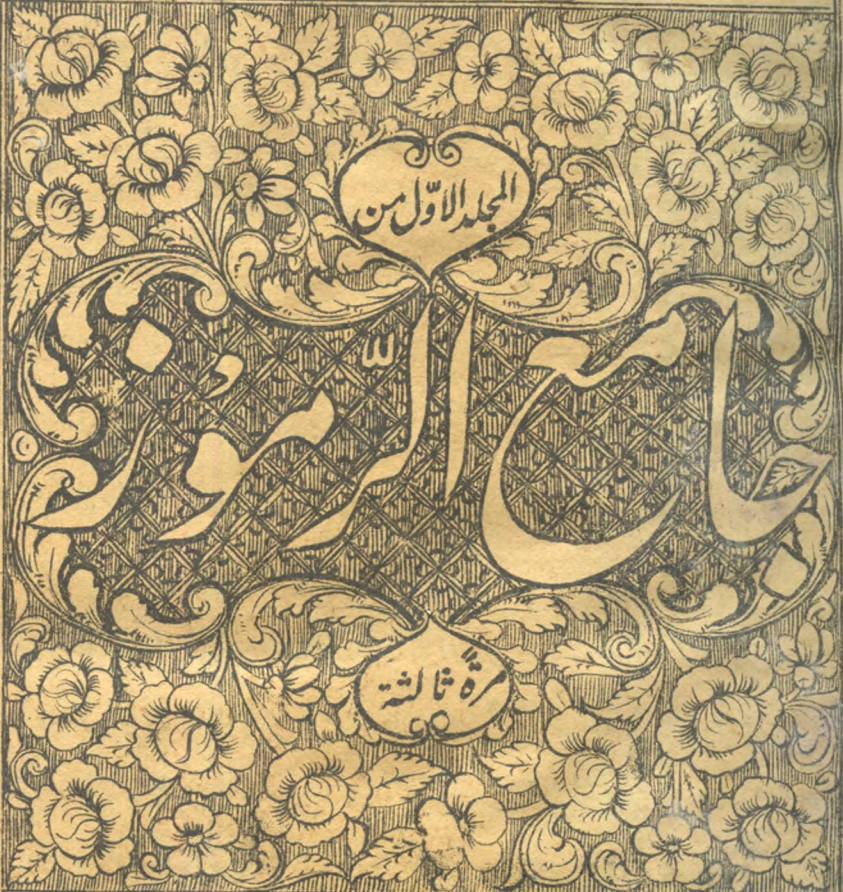 المجلد الاوّل من
جامع الرّموُز
مرّةً ثالثة